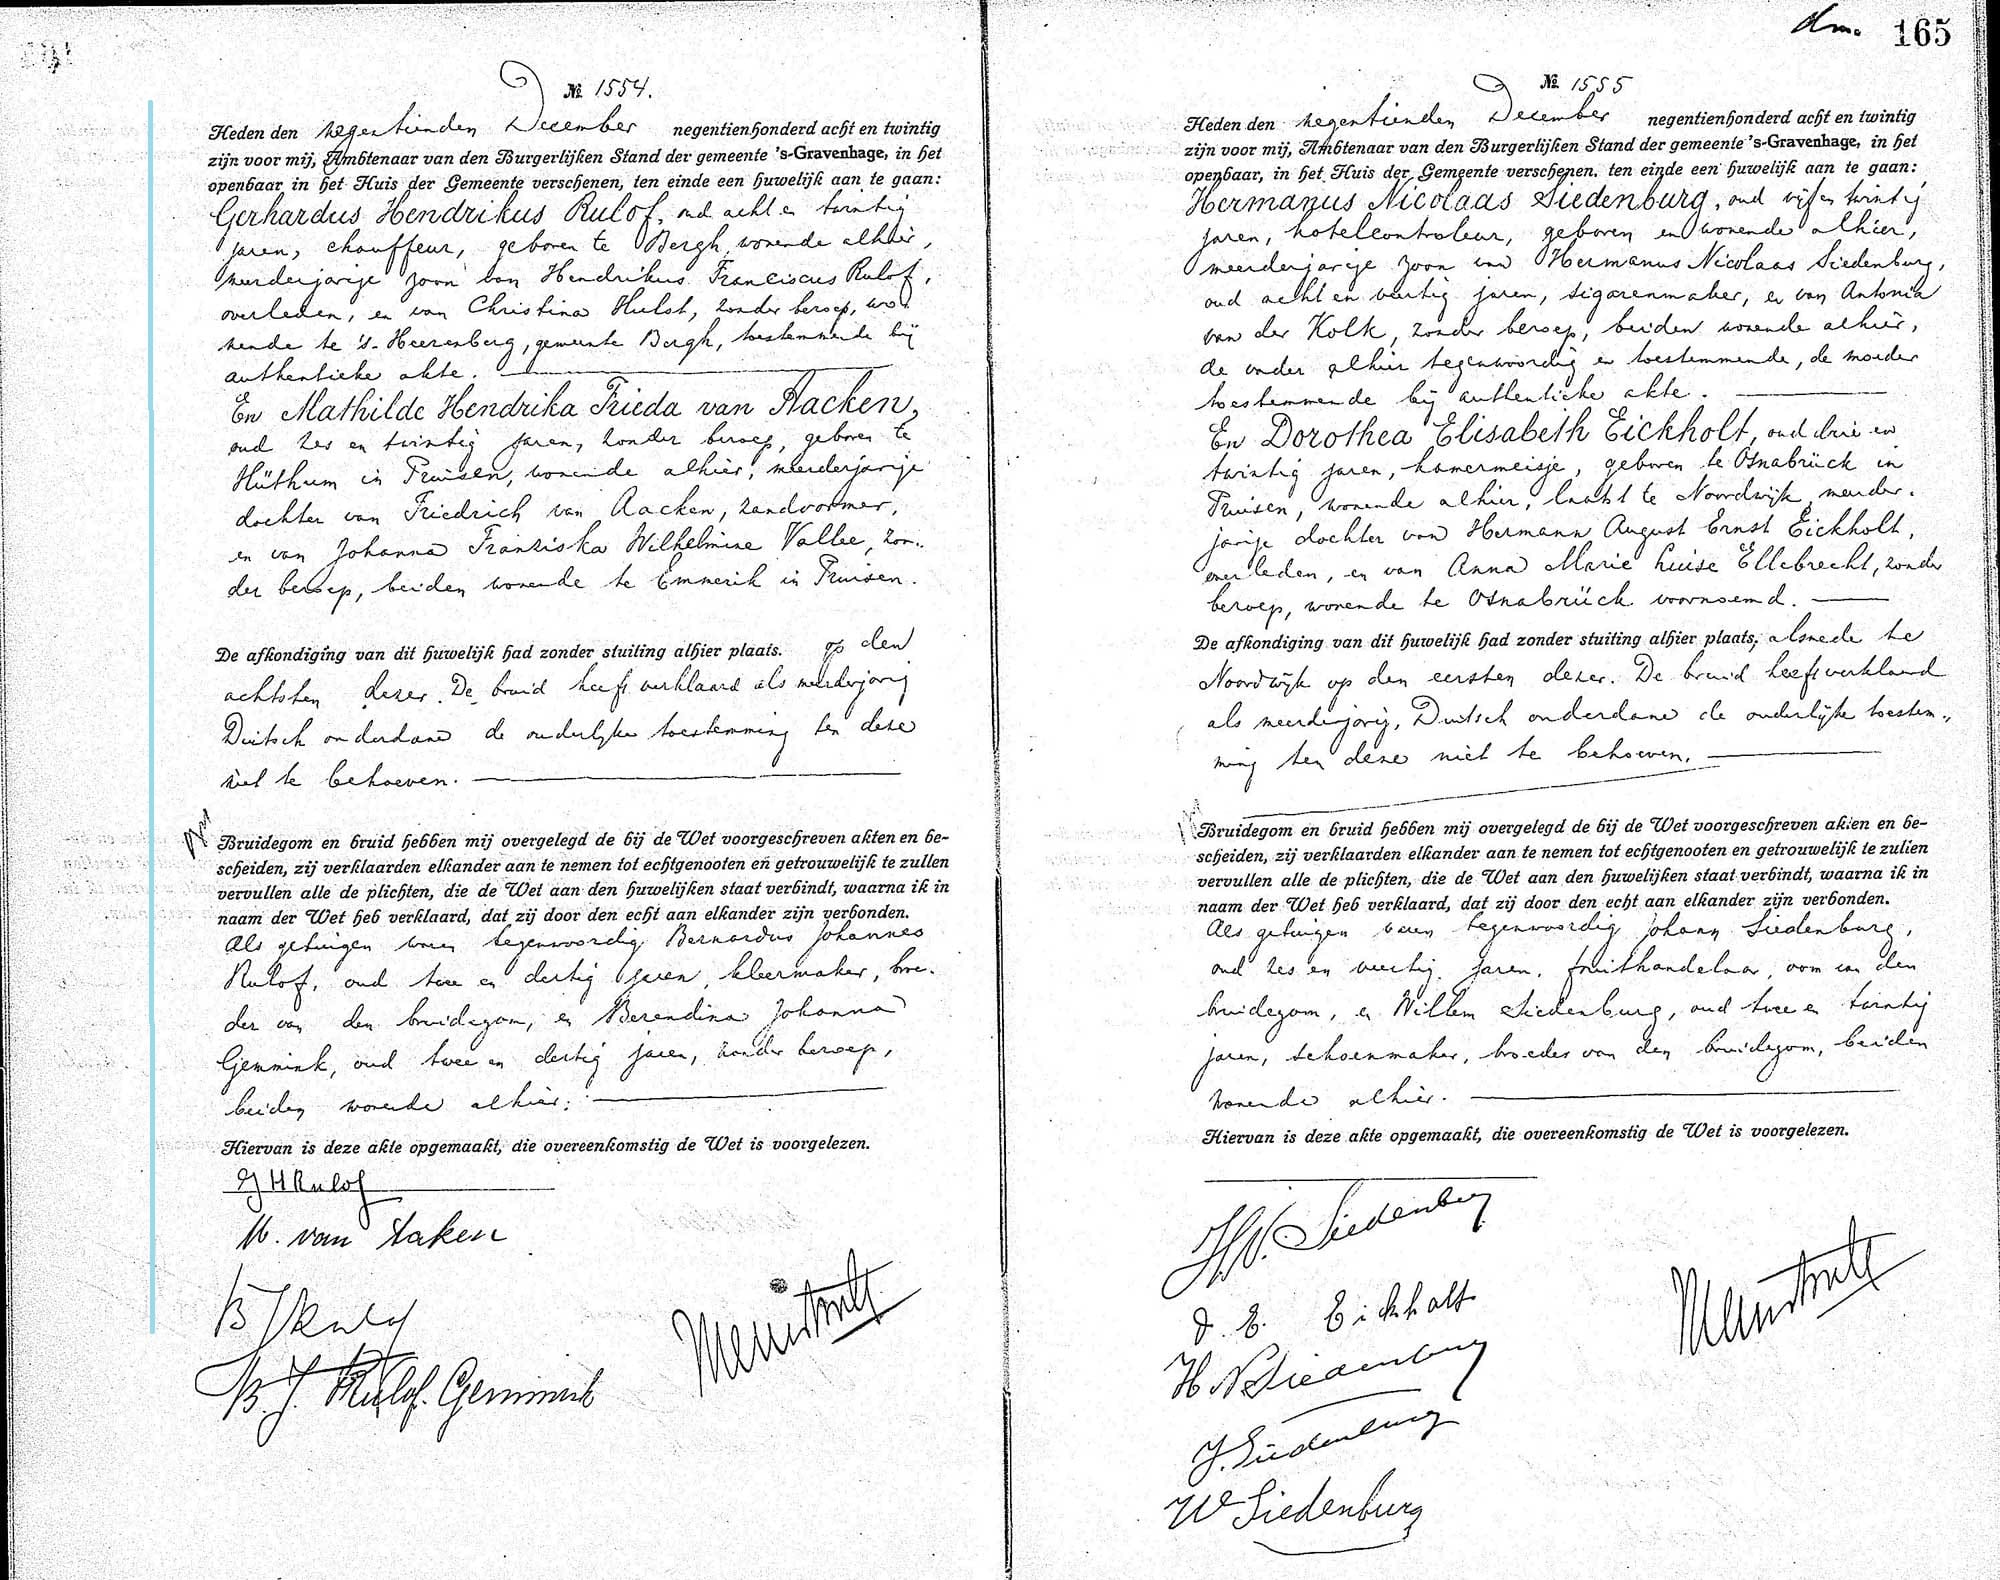 dm. 165
№ 1554.
Heden den negentienden December negentienhonderd acht en twintig
zijn voor mij, Ambtenaar van den Burgerlijken Stand der gemeente 's-Gravenhage, in het
openbaar in het Huis der Gemeente verschenen, ten einde een huwelijk aan te gaan:
Gerhardus Hendrikus Rulof, oud acht en twintig
jaren, chauffeur, geboren te Bergh, wonende alhier,
meerderjarige zoon van Hendrikus Franciscus Rulof,
overleden, en van Christina Hulst, zonder beroep, wo-
nende te 's-Heerenberg, gemeente Bergh, toestemmende bij
authentieke akte.
En Mathilde Hendrika Frieda van Aacken,
oud zes en twintig jaren, zonder beroep, geboren te
Hüthum in Pruisen, wonende alhier, meerderjarige
dochter van Friedrich van Aacken, zandvormer,
en van Johanna Franziska Wilhelmine Vallee, zon-
der beroep, beiden wonende te Emmerik in Pruisen.
De afkondiging van dit huwelijk had zonder stuiting alhier plaats. op den
achtsten dezer. De bruid heeft verklaard als meerderjarig
Duitsch onderdane de ouderlyke toestemming ten deze
niet te behoeven.
Bruidegom en bruid hebben mij overgelegd de bij de Wet voorgeschreven akten en be-
scheiden, zij verklaarden elkander aan te nemen tot echtgenooten en getrouwelijk te zullen
vervullen alle de plichten, die de Wet aan den huwelijken staat verbindt, waarna ik in
naam der Wet heb verklaard, dat zij door den echt aan elkander zijn verbonden.
Als getuigen waren tegenwoordig Bernardus Johannes
Rulof, oud twee en dertig jaren, kleermaker, broe-
der van den bruidegom, en Berendina Johanna
Gemmink, oud twee en dertig jaren, zonder beroep,
beiden wonende alhier.
Hiervan is deze akte opgemaakt, die overeenkomstig de Wet is voorgelezen.
G H Rulof
M. van Aaken
B J Rulof
B. J. Rulof. Gemmink
№ 1555
Heden den negentienden December negentienhonderd acht en twintig
zijn voor mij, Ambtenaar van den Burgerlijken Stand der gemeente 's-Gravenhage, in het
openbaar, in het Huis der Gemeente verschenen, ten einde een huwelijk aan te gaan:
Hermanus Nicolaas Siedenburg, oud vijf en twintig
jaren, hotelcontroleur, geboren en wonende alhier,
meerderjarige zoon van Hermanus Nicolaas Siedenburg,
oud acht en veertig jaren, sigarenmaker, en van Antonia
van der Kolk, zonder beroep, beiden wonende alhier,
de vader alhier tegenwoordig en toestemmende, de moeder
toestemmende bij authentieke akte.
En Dorothea Elisabeth Eickholt, oud drie en
twintig jaren, kamermeisje, geboren te Osnabrück in
Pruisen, wonende alhier, laatst te Noordwijk, meerder-
jarige dochter van Hermann August Ernst Eickholt,
overleden, en van Anna Marie Luise Ellebrecht, zonder
beroep, wonende te Osnabrück voornoemd.
De afkondiging van dit huwelijk had zonder stuiting alhier plaats, alsmede te
Noordwijk op den eersten dezer. De bruid heeft verklaard
als meerderjarig, Duitsch onderdane de ouderlijke toestem-
ming ten deze niet te behoeven.
Bruidegom en bruid hebben mij overgelegd de bij de Wet voorgeschreven akten en be-
scheiden, zij verklaarden elkander aan te nemen tot echtgenooten en getrouwelijk te zullen
vervullen alle de plichten, die de Wet aan den huwelijken staat verbindt, waarna ik in
naam der Wet heb verklaard, dat zij door den echt aan elkander zijn verbonden.
Als getuigen waren tegenwoordig Johann Siedenburg,
oud zes en veertig jaren, fruithandelaar, oom van den
bruidegom, en Willem Siedenburg, oud twee en twintig
jaren, schoenmaker, broeder van den bruidegom, beiden
wonende alhier.
Hiervan is deze akte opgemaakt, die overeenkomstig de Wet is voorgelezen.
H.N. Siedenburg
D. E. Eickholt
H N Siedenburg
J. Siedenburg
W Siedenburg